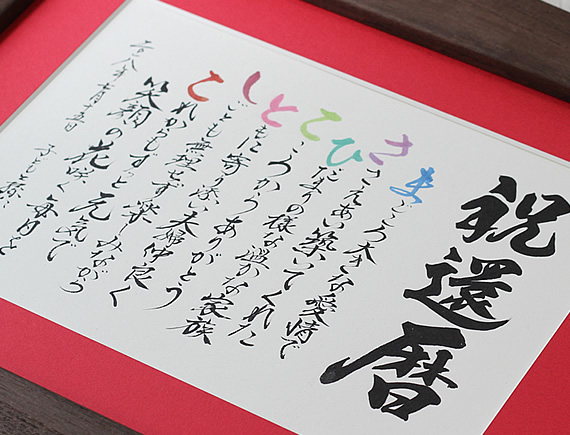 祝還暦
まごころ大きな愛情で
ささえあい築いてくれた
ひだまりの様な温かな家族
こころからありがとう
ともに寄り添い夫婦仲良く
しごとも無理せず楽しみながら
これからもずっと元気で
笑顔の花咲く毎日を
二〇一八年七月十五日
子ども孫